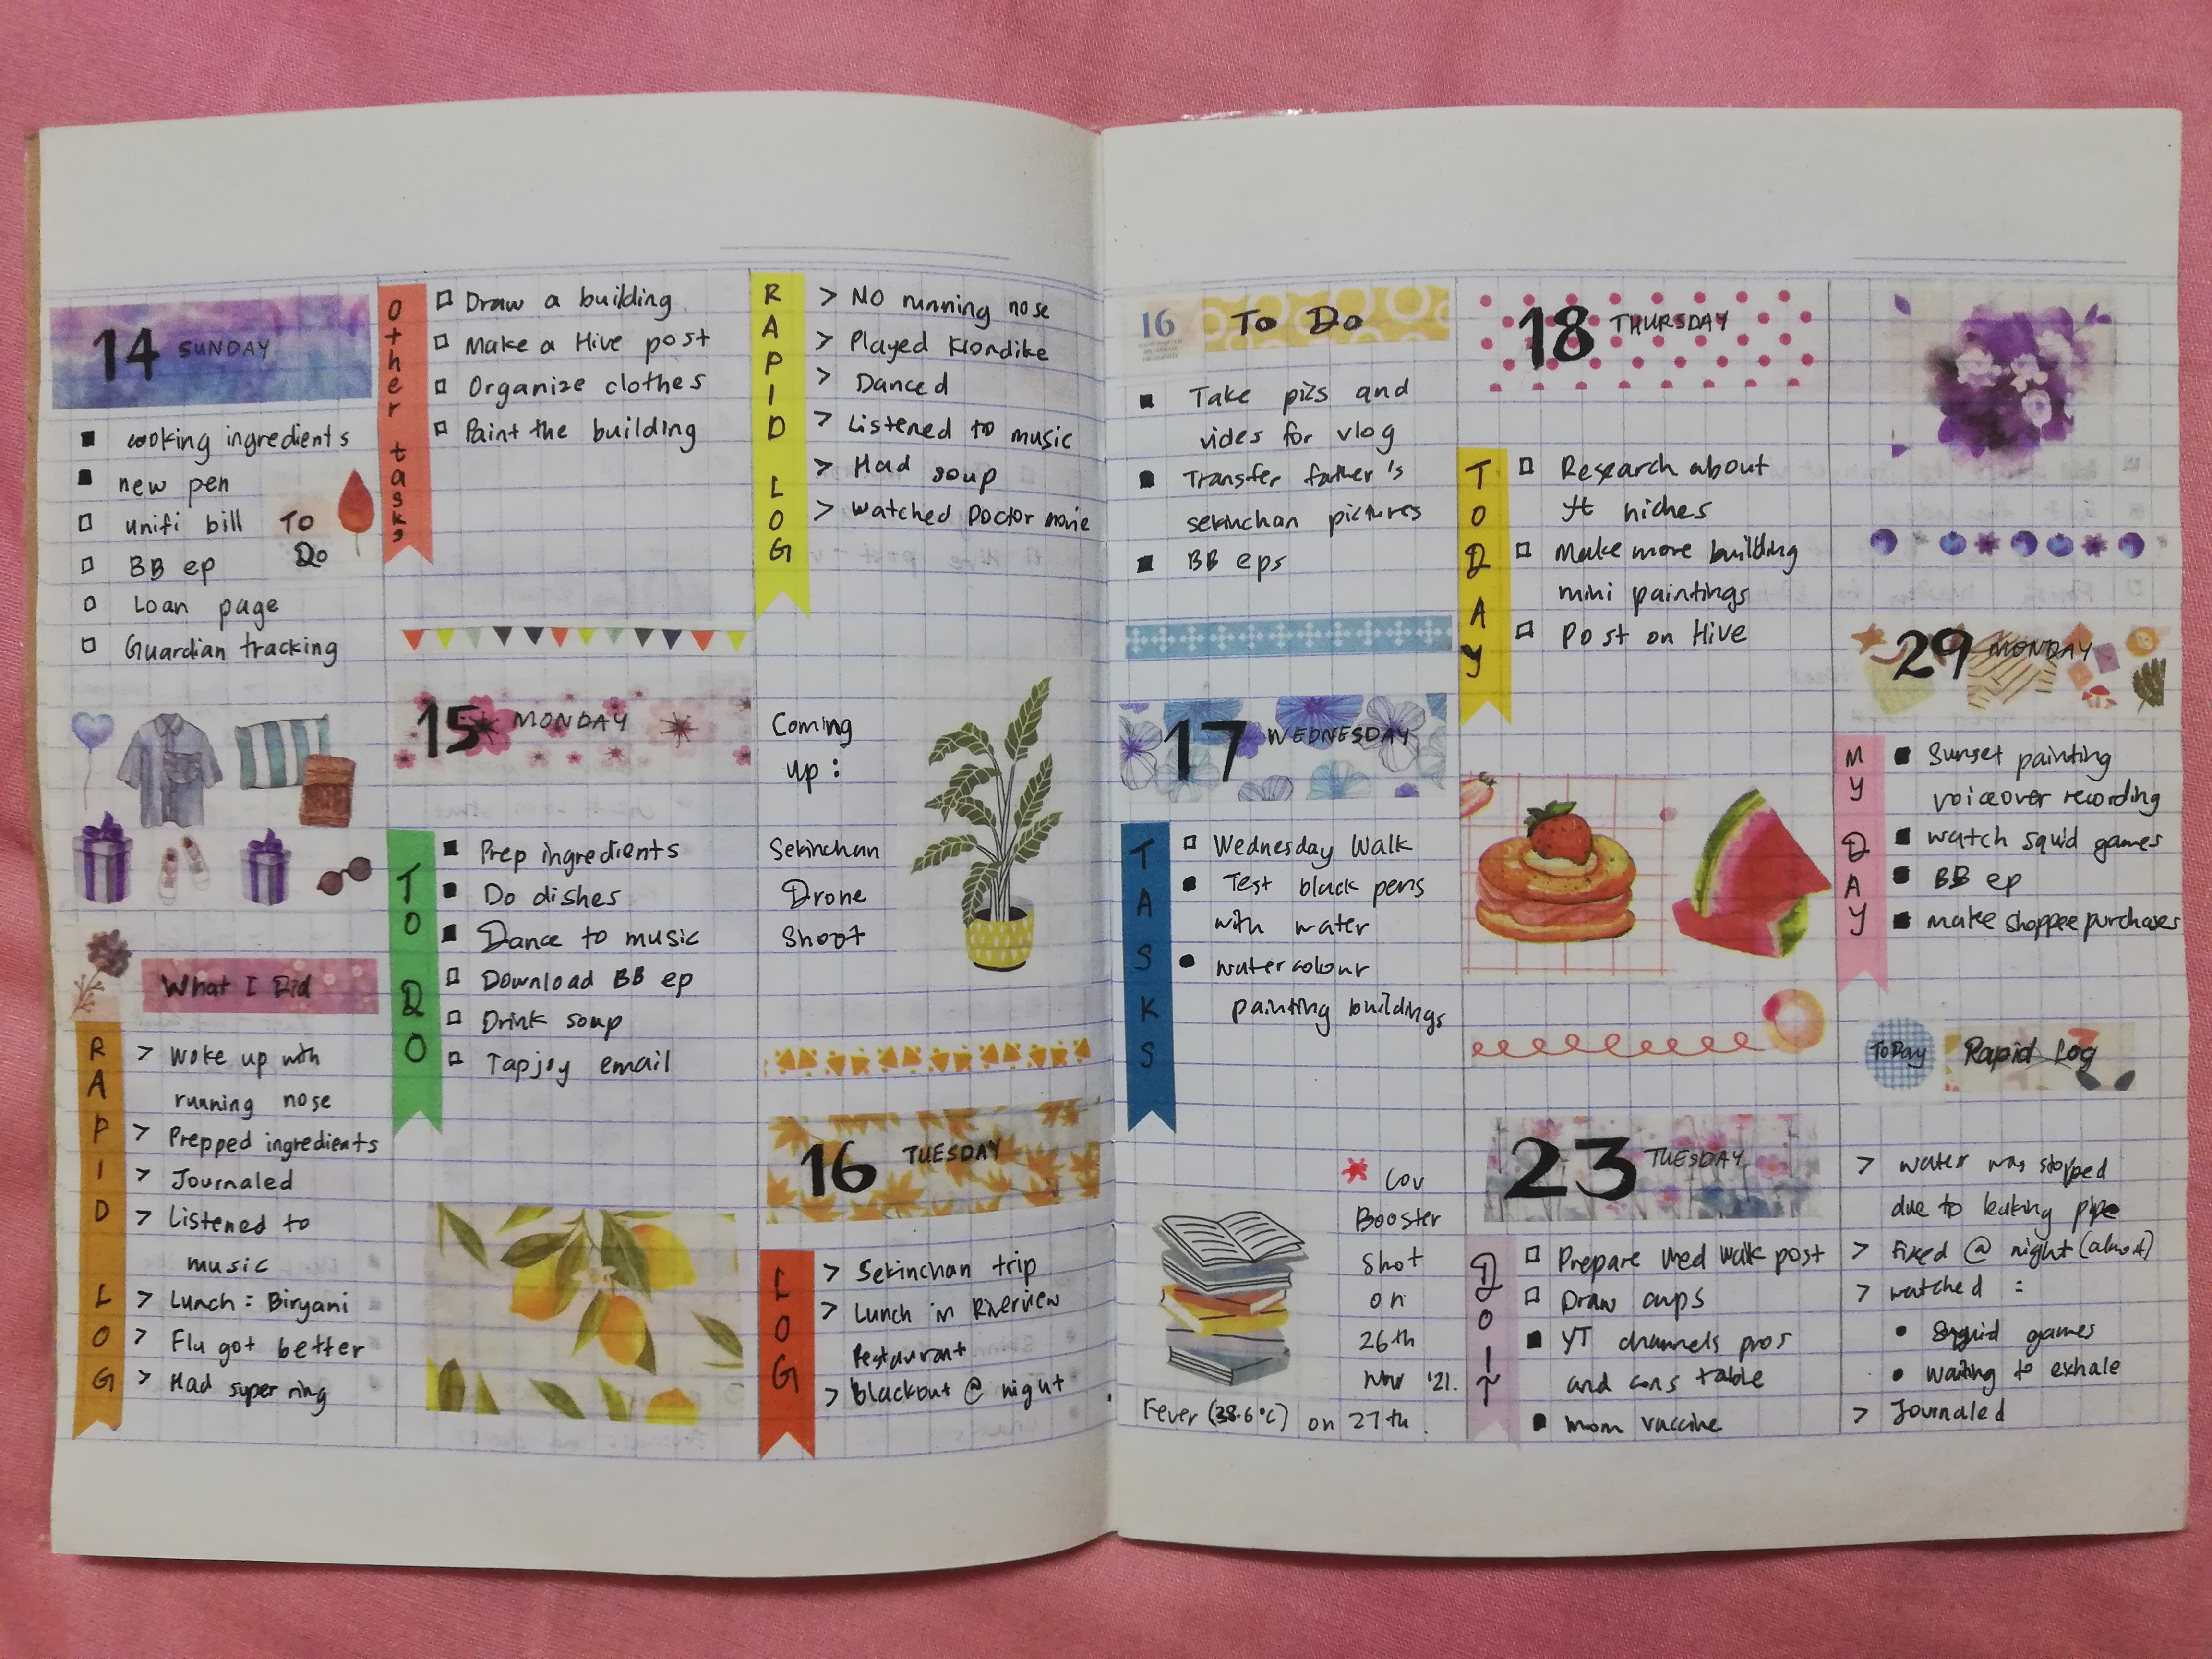 14 SUNDAY
■ cooking ingredients
■ new pen
□ unifi bill
□ BB ep
□ Loan page
□ Guardian tracking
To
Do
What I Did
RAPID LOG
> Woke up with
running nose
> Prepped ingredients
> Journaled
> Listened to
music
> Lunch: Biryani
> Flu got better
> Had super ring
Other tasks
□ Draw a building
□ Make a Hive post
□ Organize clothes
□ Paint the building
15 MONDAY
TO DO
■ Prep ingredients
■ Do dishes
■ Dance to music
□ Download BB ep
□ Drink soup
□ Tapjoy email
RAPID LOG
> No running nose
> Played Klondike
> Danced
> Listened to music
> Had soup
> Watched Doctor movie
Coming
up:
Sekinchan
Drone
Shoot
16 TUESDAY
LOG
> Sekinchan trip
> Lunch in Riverview
Restaurant
> Blackout @ night
16 To Do
■ Take pics and
vides for vlog
■ Transfer father's
sekinchan pictures
■ BB eps
17 WEDNESDAY
TASKS
□ Wednesday Walk
● Test black pens
with water
● watercolour
painting buildings
Cov
Booster
Shot
on
26th
Nov '21.
Fever (38.6°C) on 27th.
18 THURSDAY
TODAY
□ Research about
yt niches
□ Make more building
mini paintings
□ Post on Hive
23 TUESDAY
DO IT
□ Prepare Wed Walk post
□ Draw cups
■ YT channels pros
and cons table
■ mom vaccine
29 MONDAY
MY DAY
■ Sunset painting
voiceover recording
■ watch squid games
■ BB ep
■ make shoppee purchases
ToDay
Rapid Log
> water was stopped
due to leaking pipe
> Fixed @ night (almost)
> watched :
• Squid games
• waiting to exhale
> Journaled